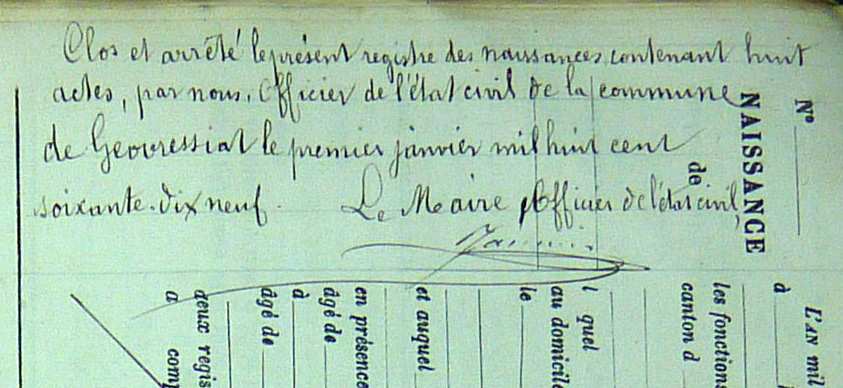 Clos et arrêté le présent registre des naissances, contenant huit
actes, par nous, Officier de l'état civil de la commune
de Geovressiat le premier janvier mil huit cent
soixante-dix neuf. Le Maire, Officier de l'état civil,
N°
NAISSANCE
de
L'AN mil
à
les fonctions
canton d
l quel
au domicile
le
et auquel
en présence
âgé de
à
âgé de
deux regis
a comp